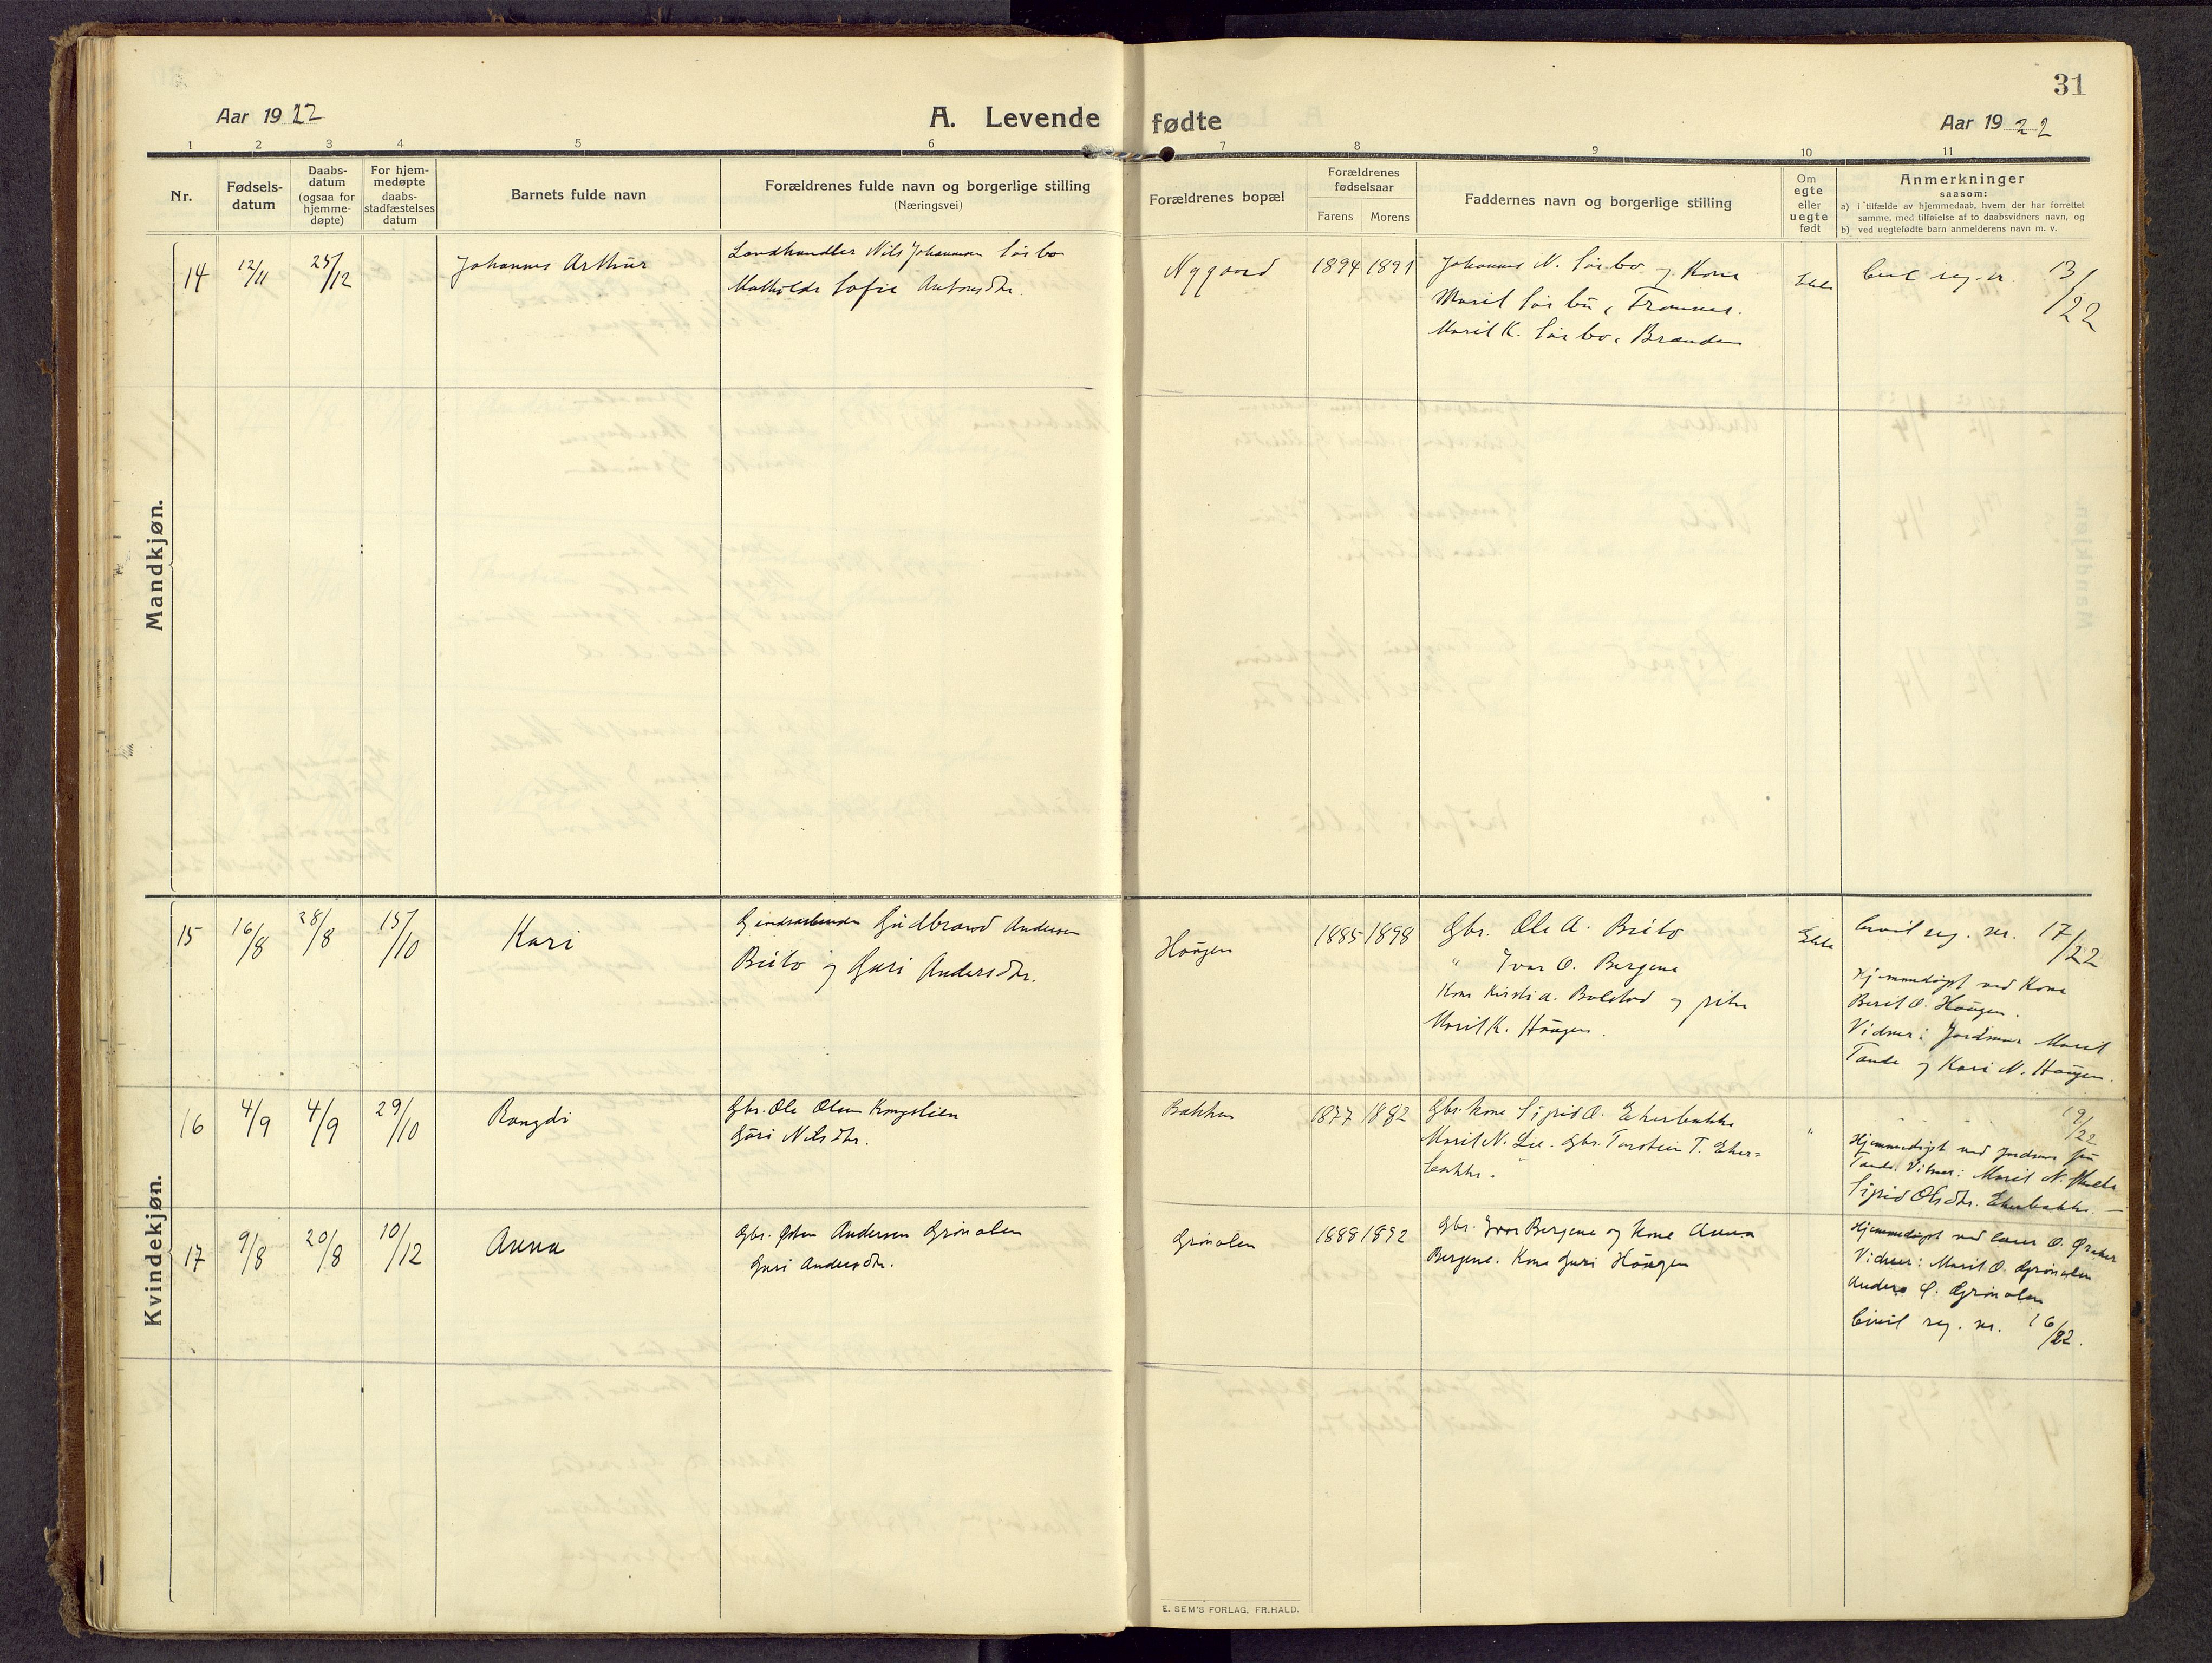 31
Aar 1922
A. Levende fødte
Aar 1922
1 2 3 4 5 6 7 8 9 10 11
Nr.
Fødsels-
datum
Daabs-
datum
(ogsaa for
hjemme-
døpte)
For hjem-
medøpte
daabs-
stadfæstelses
datum
Barnets fulde navn
Forældrenes fulde navn og borgerlige stilling
(Næringsvei)
Forældrenes bopæl
Forældrenes
fødselsaar
Farens Morens
Faddernes navn og borgerlige stilling
Om
egte
eller
uegte
født
Anmerkninger
saasom:
a) i tilfælde av hjemmedaab, hvem der har forrettet
samme, med tilføielse av to daabsvidners navn, og
b) ved uegtefødte barn anmelderens navn m. v.
Mandkjøn.
14
12/11
25/12
Johannes Arthur
Landhandler Nils Johannesen Sørbo
Mathilde Sofie Antonsdtr.
Nygaard
1894 1891
Johannes N. Sørbo og Kone
Marit Sørbu, Framnes.
Marit K. Sørbo, Branden
Ekte
Civil reg. nr. 13/22
Kvindekjøn.
15
16/8
28/8
15/10
Kari
Gudbrand Andersen
Beito og Guri Andersdtr.
Haugen
1885 1898
Gbr. Ole A. Beito
" Ivar O. Bergene
Kone Kirsti A. Bolstad og pike
Marit K. Haugen.
Ekte
Civil reg. nr. 17/22
Hjemmedøpt ved Kone
Berit O. Haugen.
Vidner: Jordmor Marit
Tande og Kari N. Haugen.
16
4/9
4/9
29/10
Rangdi
Gbr. Ole Olsen Kongslien
Guri Nilsdtr.
Bakken
1877 1882
Gbr. kone Sigrid O. Ekerbakke
Marit N. Lie. Gbr. Torstein T. Eker-
bakke.
"
19/22
Hjemmedøpt ved jordmor
Tande. Vitner: Marit N.
Sigrid Olsdtr. Ekerbakke.
17
9/8
20/8
10/12
Anna
Gbr. Østen Andersen Grønolen
Guri Andersdtr.
Grønolen
1888 1892
Gbr. Ivar Bergene og Kone Anna
Bergene. Kone Guri Haugen
Hjemmedøpt ved O.
Vidner: Marit O. Grønolen
Anders Ø. Grønolen
Civil reg. nr. 16/22.
E. SEM'S FORLAG, FR.HALD.